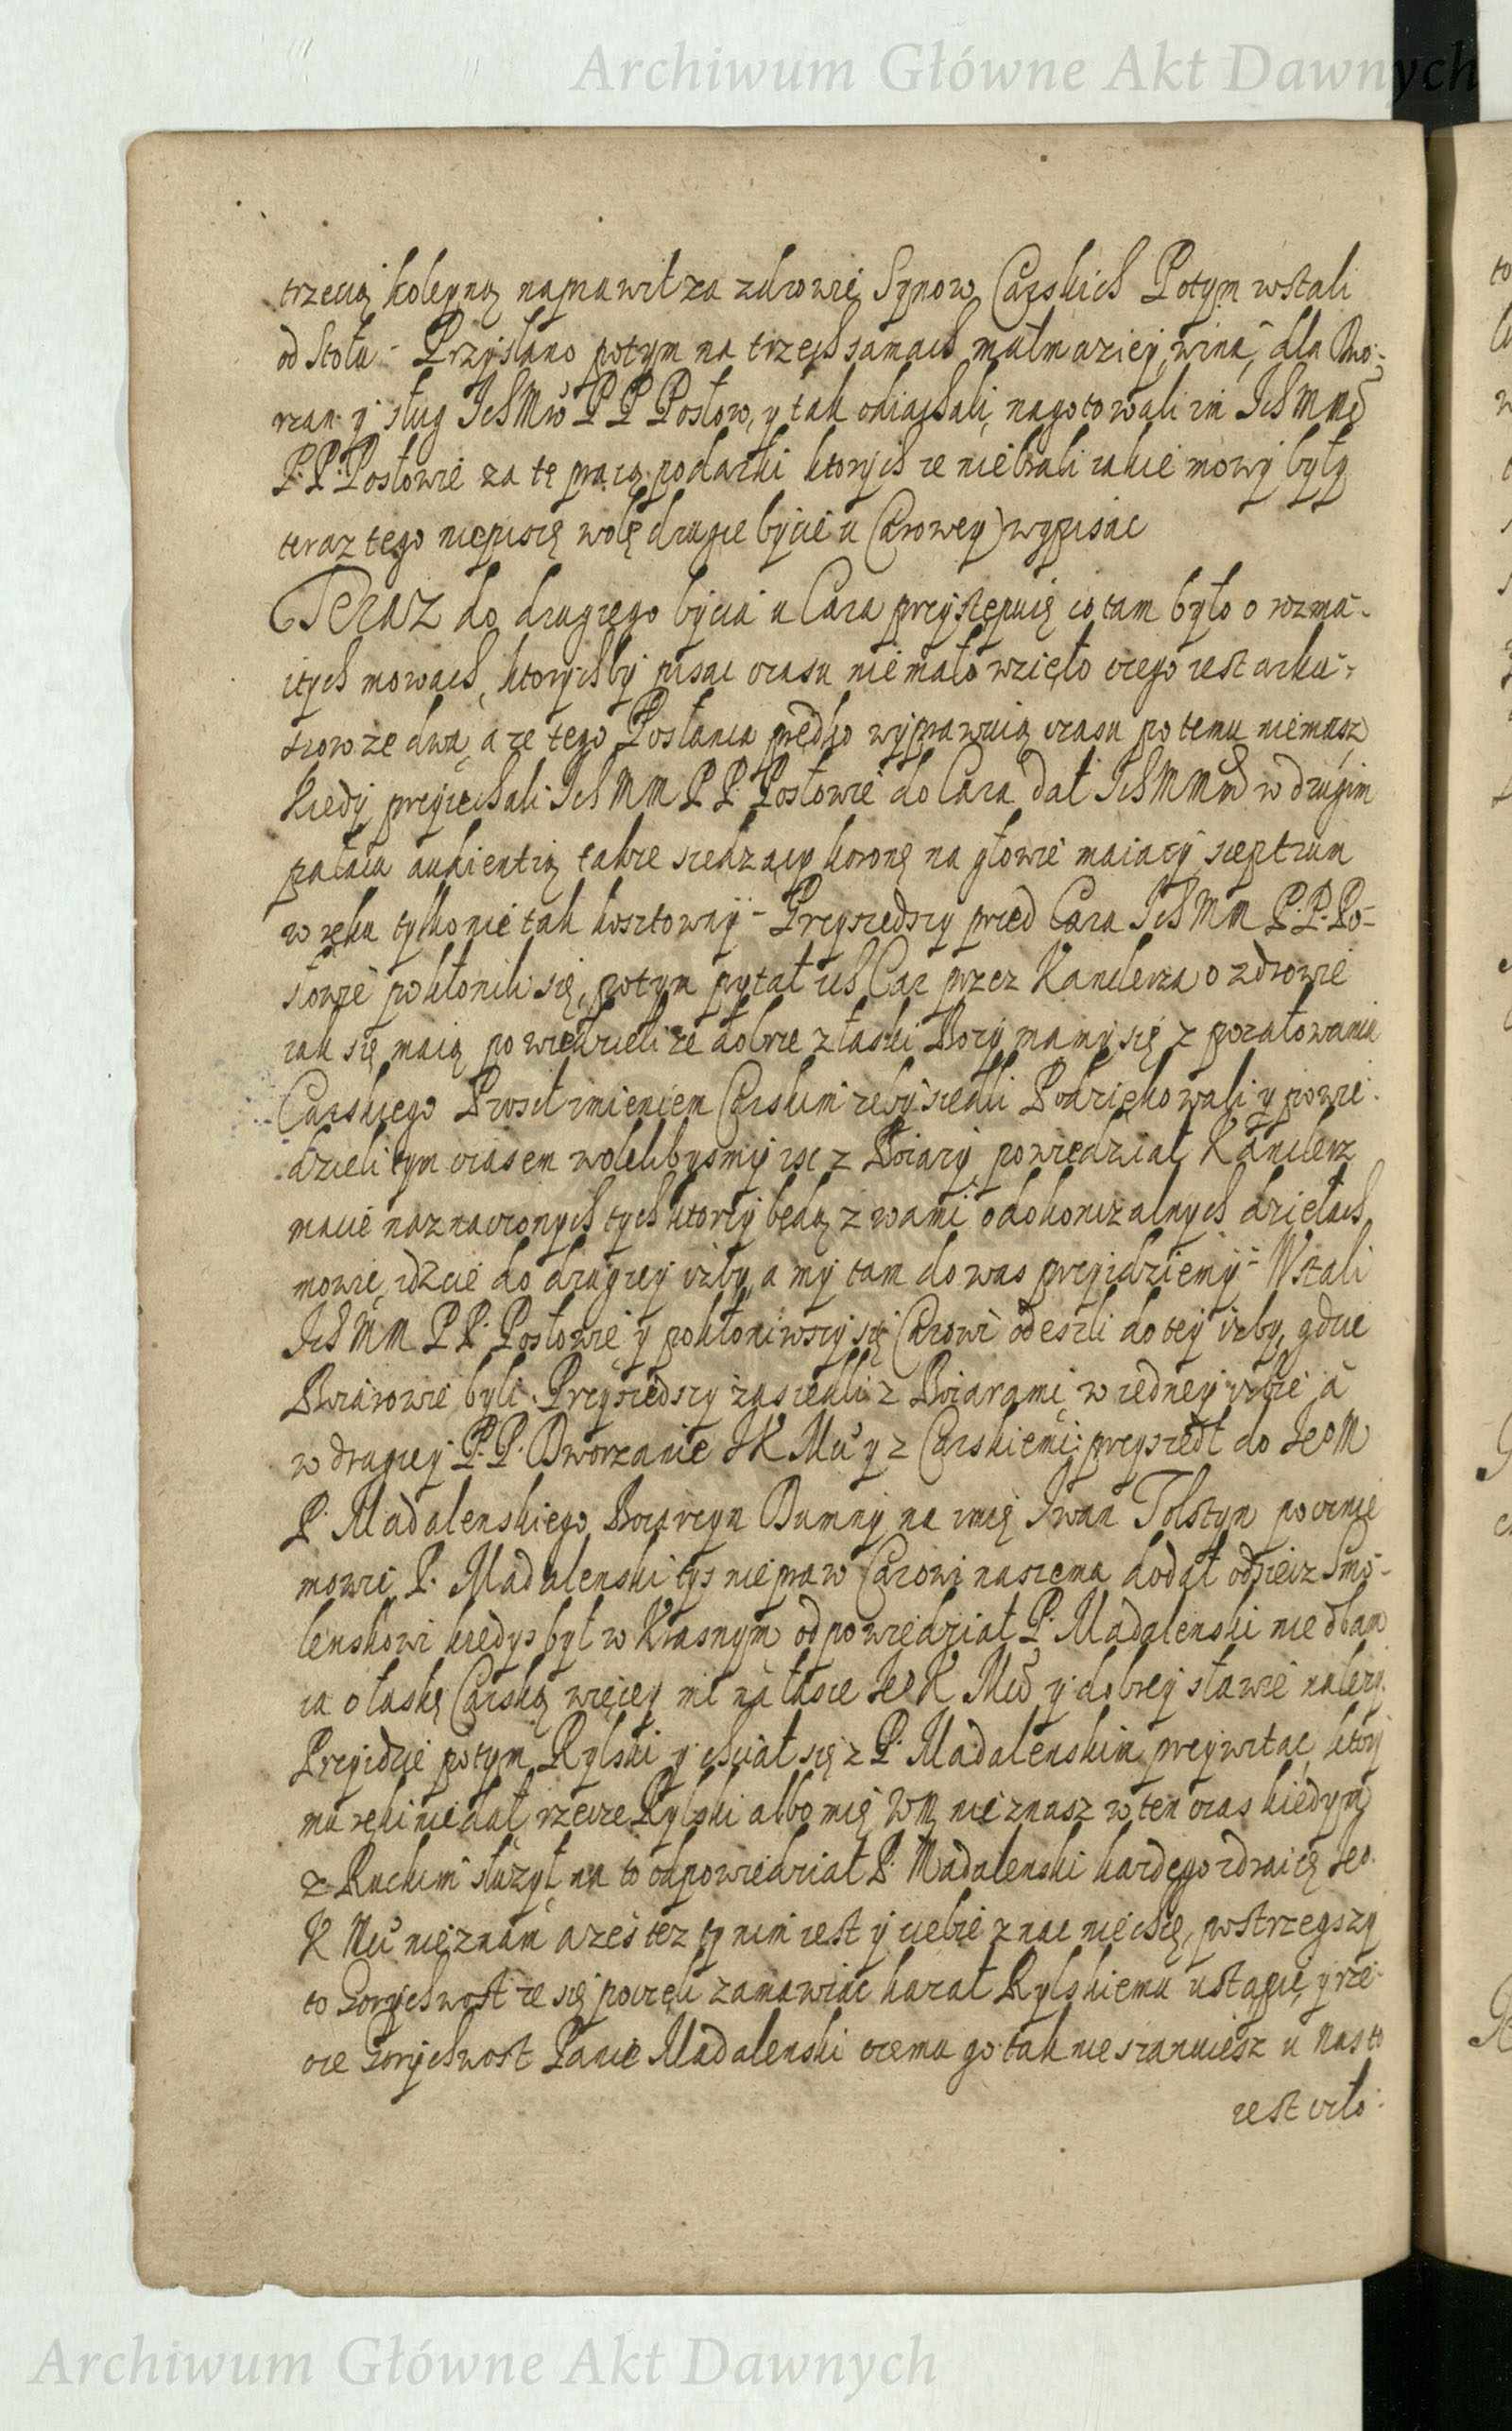 Archiwum Główne Akt Dawnych
trzecią koleyną naprawił za zdrowie Synow Carskich Potym wstali
od Stołu - Przysłano potym na trzech saniach małmaziey, wina, dla Dwo-
rzan y sług IchMw P P Posłow, y tak odiachali, nagotowali im IchMM
P. P. Posłowie za tę pracą podarki ktorych ze niebrali iakie mowy były
teraz tego niepiszę wolę drugie bycie u Carowey wypisac
Teraz do drugiego bycia u Cara przystępuię co tam było o rozma-
itych mowach, ktorychby pisac czasu niemało wzięło czego iest arku-
szow ze dwa, a ze tego Posłanca prędko wyprawuią czasu po temu niemasz
Kiedy przyiechali IchMM P P. Posłowie do Cara dał IchMM w drugim
pałacu audientią takze siedzący koronę na głowie maiący sceptrum
w ręku tylko nie tak kosztowny - Przyszedszy przed Cara IchMM P. P. Po-
słowie pokłonili się, potym pytał ich Car przez Kanclerza o zdrowie
iak się maią powiedzieli ze dobrze z łaski Bozy mamy się z pozałowania
Carskiego Prosił imieniem Carskim zeby siedli Podziękowali y powie-
dzieli tym czasem wolelibysmy isc z Boiary, powiedział Kanclerz
macie naznaczonych tych ktorzy będą z wami o dokonczalnych dziełach
mowic, idzcie do drugiey izby, a my tam do was przyidziemy - Wstali
IchMM P P. Posłowie y pokłoniwszy się Carowi odeszli do tey izby, gdzie
Boiarowie byli. Przyszedszy zasiedli z Boiarami w iedney izbie a
w drugiey P. P. Dworzanie J K Mci y z Carskiemi przyszedł do JeoM
P. Madalenskiego Boiarzyn Dumny na imię Iwan Tolstyn pocznie
mowic P. Madalenski tys nie praw Carowi naszemu dodał odsiecz Smo-
lenskowi kiedys był w Krasnym odpowiedział P. Madalenski nie dbam
ia o łaskę Carską więcey mi na łasce JeoK Mci y dobrey sławie nalezy.
Przyidzie potym Rylski y chciał się z P. Madalenskim przywitac, ktory
mu ręki nie dał, rzecze Rylski albo mię WM nie znasz w ten czas kiedym
z Ruckim słuzył na to odpowiedział P. Madalenski kazdego zdraicę Jeo.
K Mci nieznam a zes tez ty nim iest y ciebie znac niechcę, postrzegszy
to Gorychwost ze się poczęli zamawiac kazał Rylskiemu ustąpic, y rze-
cze Gorychwost Panie Madalenski czemu go tak nieszanuiesz u nas to
iest czło-
Archiwum Główne Akt Dawnych